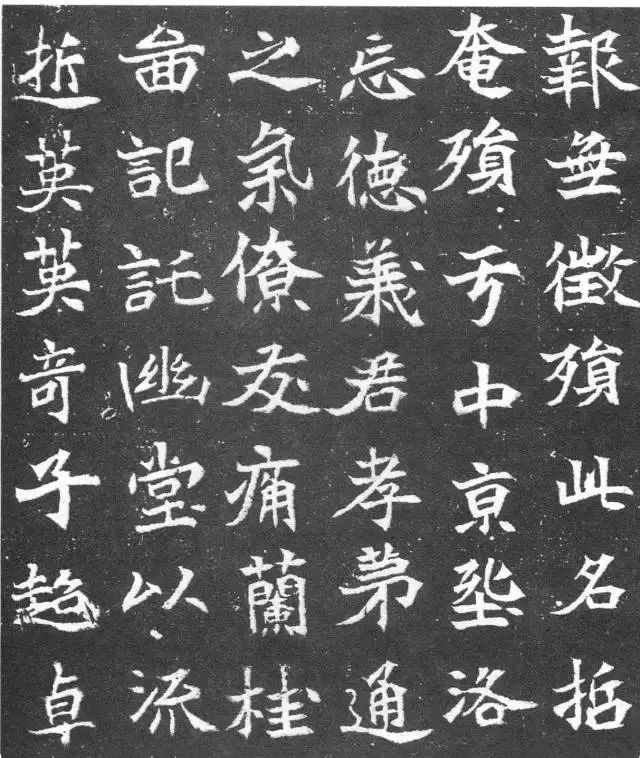 報無徵殞此名
奄殞亏中亰洛
忘德義君孝弟通
之氣僚友痛蘭桂
啚記託幽堂以流
逝英英奇子超卓